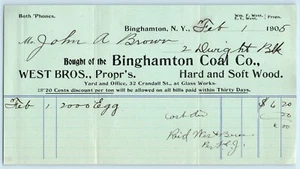 Both 'Phones.
WM. F. WEST,
C. E. WEST.
Binghamton, N. Y., Feb 1 1905
Mr. John A Brown
2 Dwight Blk
Bought of the Binghamton Coal Co.,
WEST BROS., Propr's. Hard and Soft Wood.
Yard and Office, 32 Crandall St., at Glass Works.
20 Cents discount per ton will be allowed on all bills paid within Thirty Days.
Feb 1 2000 Egg $6 20
20
6 00
Paid West Bros